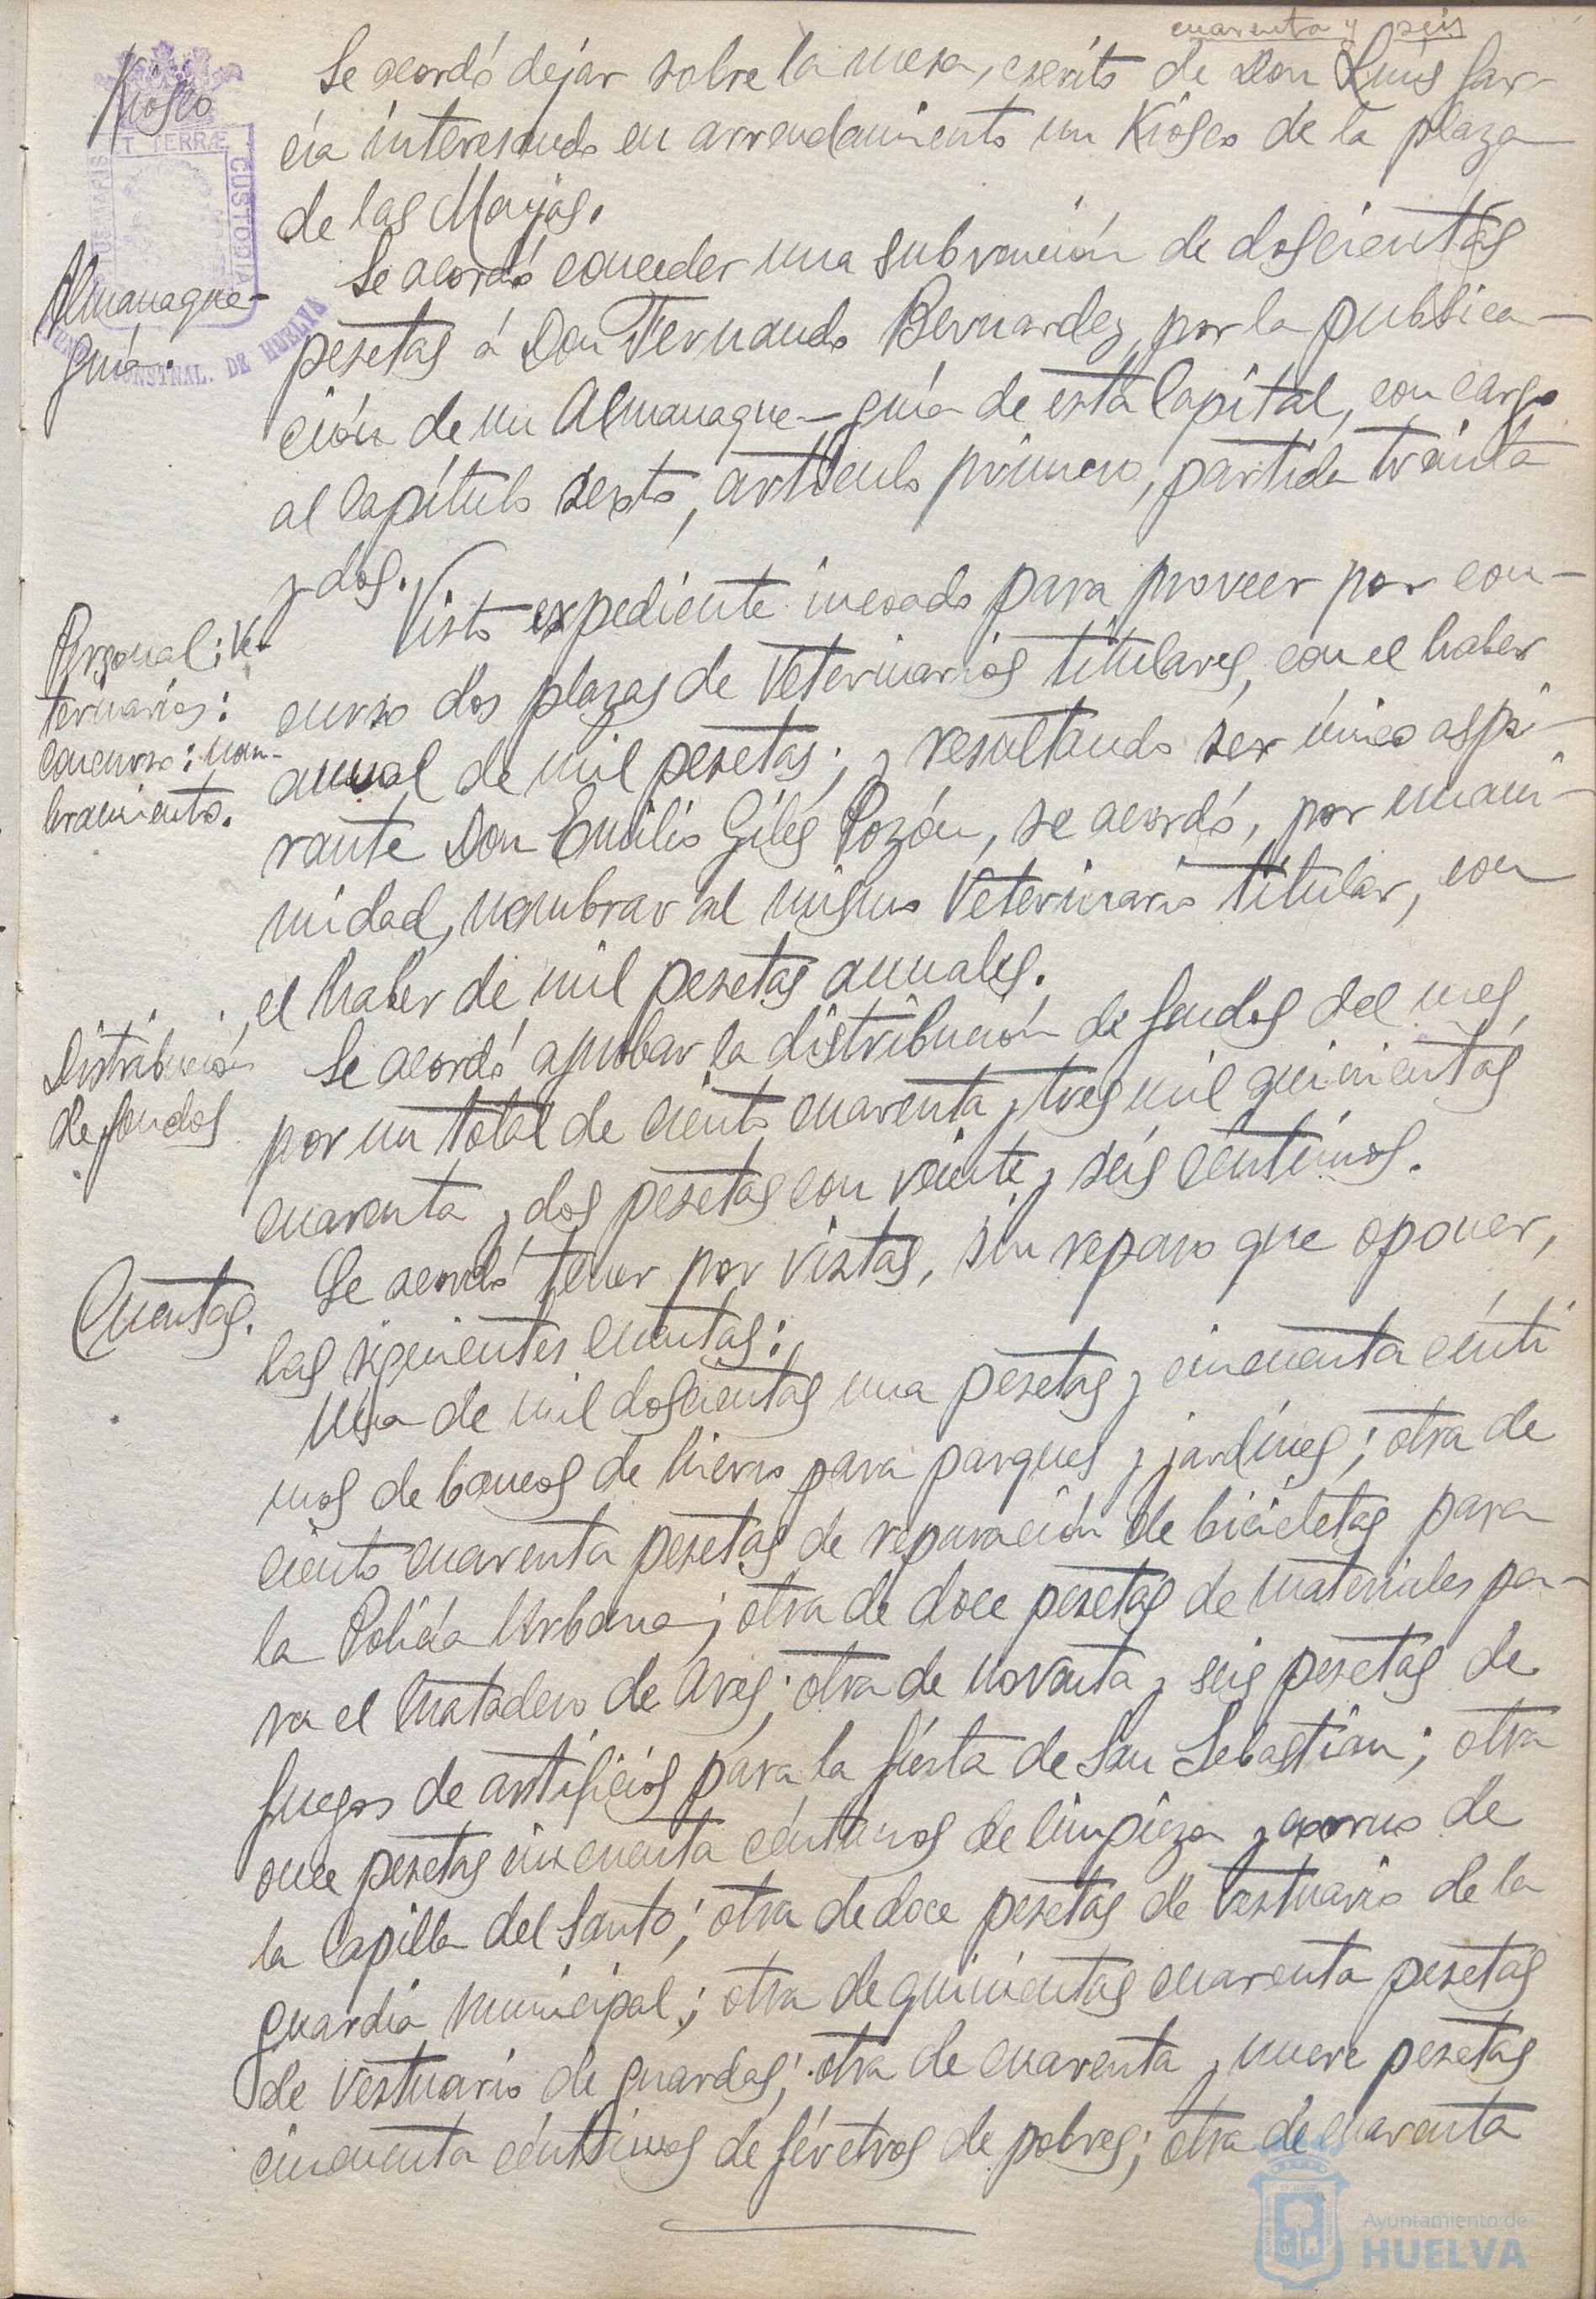 cuarenta y seis
Kiosco
Se acordó dejar sobre la mesa, escrito de Don Luis Gar-
cía interesando en arrendamiento un Kiosco de la plaza
de las Monjas.
Almanaque-
guía.
Se acordó conceder una subvención de doscientas
pesetas á Don Fernando Bernardez, por la publica-
ción de un Almanaque-guía de esta Capital, con cargo
al Capítulo sexto, artículo primero, partida treinta
y dos.
Personal; Ve-
terinarios:
Concurso: nom-
bramiento.
Visto expediente incoado para proveer por con-
curso dos plazas de Veterinarios titulares, con el haber
anual de mil pesetas; y resultando ser único aspi-
rante Don Emilio Giles Pozón, se acordó, por unani-
midad, nombrar al mismo Veterinario titular, con
el haber de mil pesetas anuales.
Distribución
de fondos
Se acordó aprobar la distribución de fondos del mes,
por un total de ciento cuarenta y tres mil quinientas
cuarenta y dos pesetas con veinte y seis céntimos.
Cuentas.
Se acordó tener por vistas, sin reparo que oponer,
las siguientes cuentas:
Una de mil doscientas una pesetas y cincuenta cénti
mos de bancos de hierro para parques y jardines; otra de
ciento cuarenta pesetas de reparación de bicicletas para
la Policía Urbana; otra de doce pesetas de materiales pa-
ra el Matadero de Aves; otra de noventa y seis pesetas de
fuegos de artificios para la fiesta de San Sebastián; otra
once pesetas cincuenta céntimos de limpieza y exorno de
la Capilla del Santo; otra de doce pesetas de Vestuario de la
guardia Municipal; otra de quinientas cuarenta pesetas
de Vestuario de guardas; otra de cuarenta y nueve pesetas
cincuenta céntimos de féretros de pobres; otra de cuarenta
ET TERRÆ
CUSTODIA
CONSTNAL. DE HUELVA
Ayuntamiento de
HUELVA